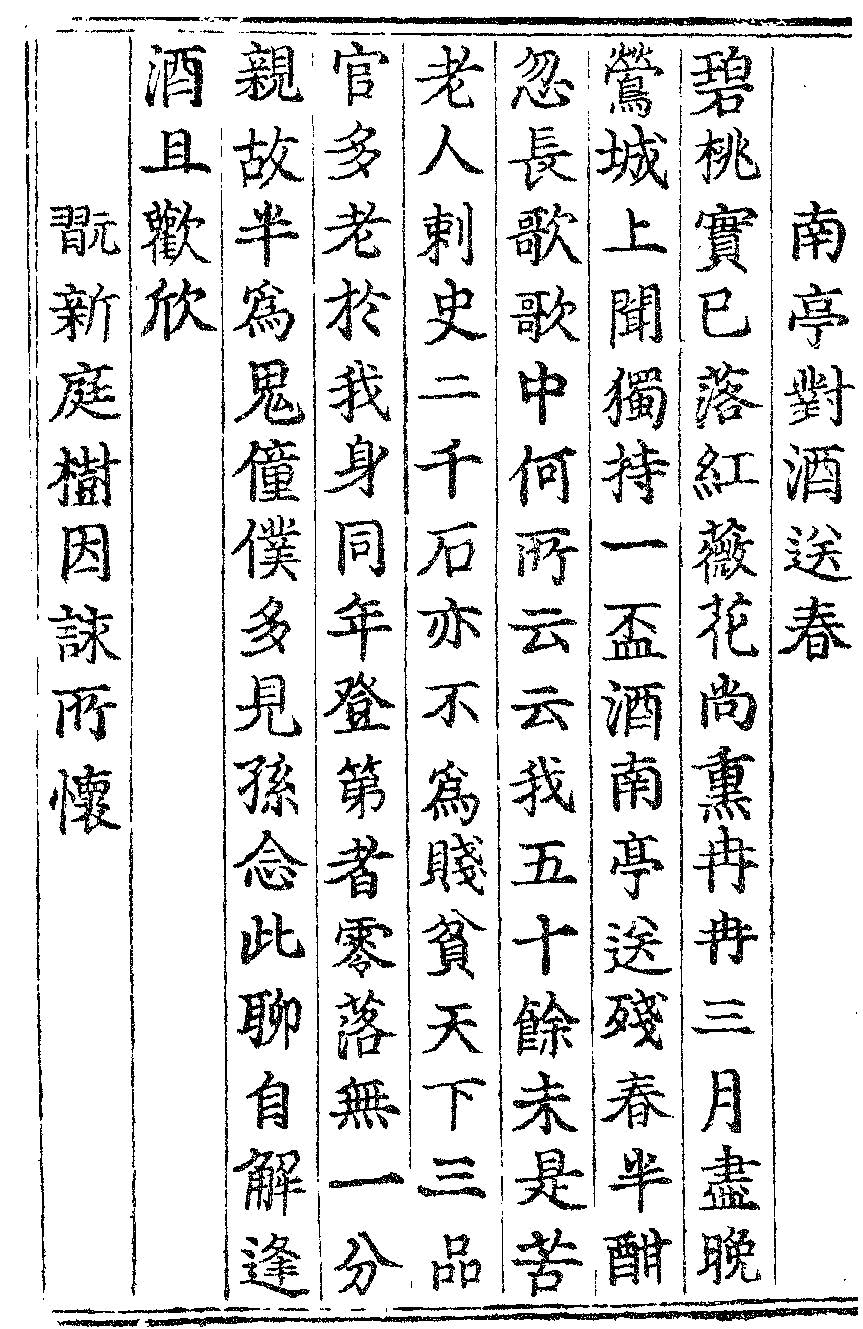 南亭對酒送春
碧桃實已落紅薇花尚熏冉冉三月盡晚
鶯城上聞獨持一盃酒南亭送殘春半酣
忽長歌歌中何所云云我五十餘未是苦
老人刺史二千石亦不爲賤貧天下三品
官多老於我身同年登第者零落無一分
親故半爲鬼僮僕多見孫念此聊自解逢
酒且歡欣
翫新庭樹因詠所懷